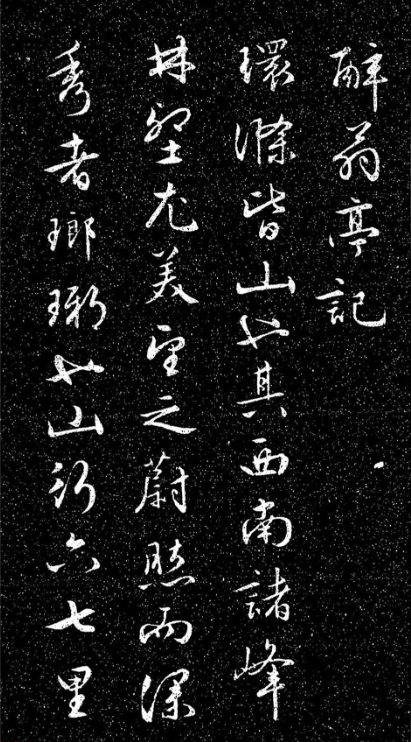 醉翁亭記
環滁皆山也其西南諸峰
林壑尤美望之蔚然而深
秀者瑯琊也山行六七里